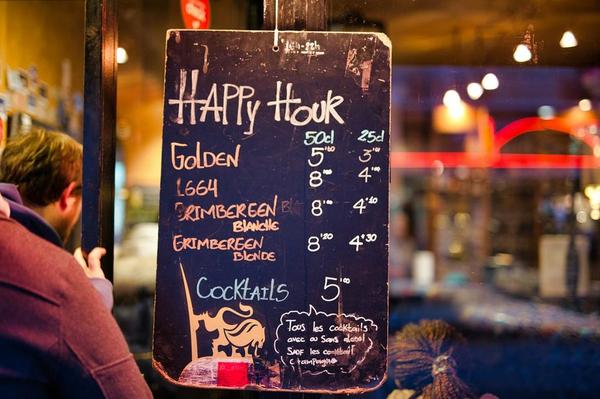 HAPPY HOUR
50cl 25cl
GOLDEN 5'00 3'00
1664 8'00 4'00
GRIMBERGEN BLANCHE 8'00 4'10
GRIMBERGEN BLONDE 8'20 4'30
COCKTAILS 5'00
Tous les cocktails
avec ou sans alcool
SAUF les
champagne